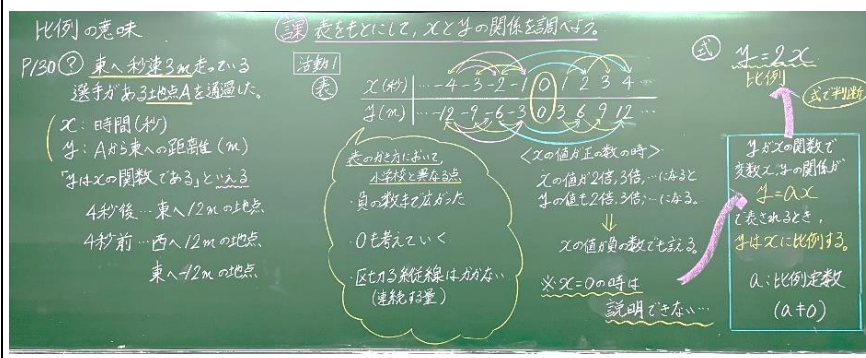 比例の意味
P130 ? 東へ秒速3m走っている
選手がある地点Aを通過した。
x:時間(秒)
y:Aから東への距離(m)
「yはxの関数である」といえる
4秒後…東へ12mの地点
4秒前…西へ12mの地点
東へ-12mの地点
課 表をもとにして、xとyの関係を調べよう。
活動1
表
x(秒) … -4 -3 -2 -1 0 1 2 3 4 …
y(m) … -12 -9 -6 -3 0 3 6 9 12 …
表のかき方において
小学校と異なる点
・負の数まで広がった
・0も考えていく
・区切る縦線はかかない
(連続する量)
<xの値が正の数の時>
xの値が2倍、3倍、…になると
yの値も2倍、3倍、…になる。
⇓
xの値が負の数でも言える。
※x=0の時は
説明できない…
式 y=2x
比例
式で判断
yがxの関数で
変数x、yの関係が
y=ax
で表されるとき、
yはxに比例する。
a:比例定数
(a≠0)